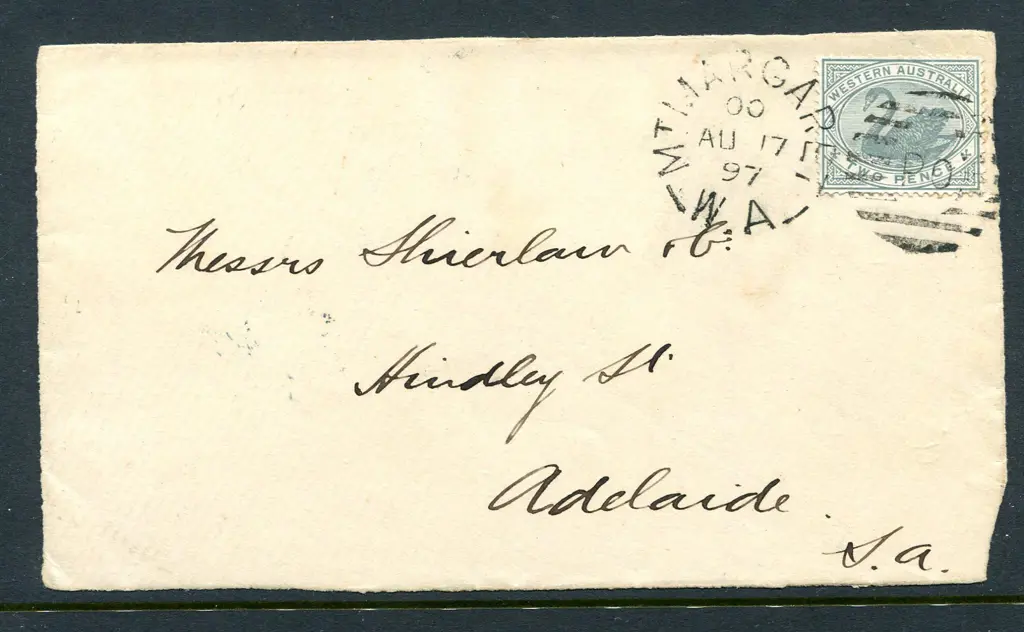 MT MARGARET
00
AU 17
97
W A
WESTERN AUSTRALIA
TWO PENCE
PO
Messrs Shierlaw & Co:
Hindley St
Adelaide
S.A.